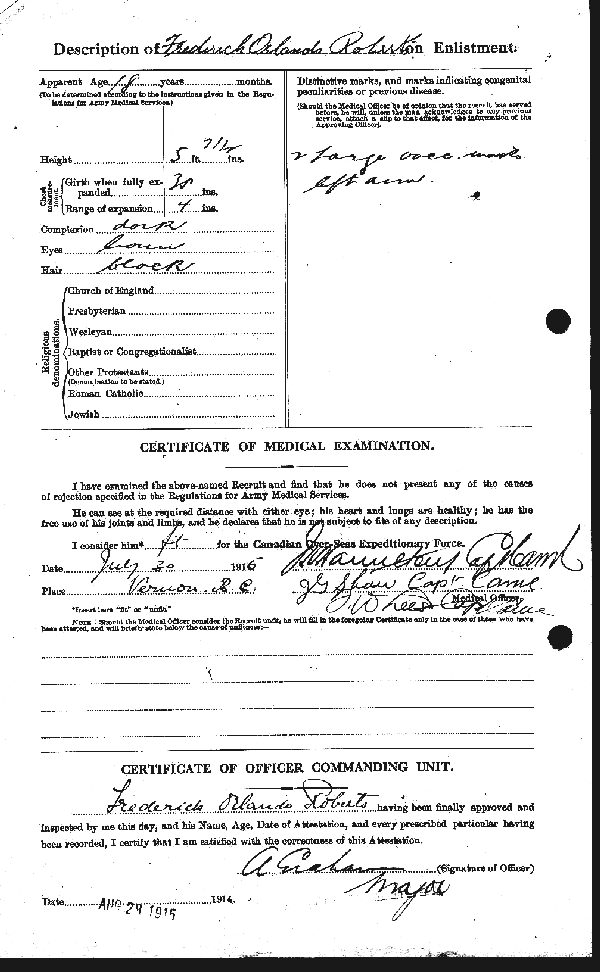 Description of Frederick Orlando Roberts on Enlistment.
Apparent Age 18 years months.
(To be determined according to the instructions given in the Regulations for Army Medical Services)
Distinctive marks, and marks indicating congenital
peculiarities or previous disease.
(Should the Medical Officer be of opinion that the recruit has served
before, he will, unless the man acknowledges to any previous
service, attach a slip to that effect, for the information of the
Approving Officer).
Height 5 ft. 7 1/2 ins.
2 Large vacc. marks
left arm.
Chest measurement.
Girth when fully expanded 38 ins.
Range of expansion 4 ins.
Complexion dark
Eyes brown
Hair black
Religious denominations.
Church of England
Presbyterian
Wesleyan
Baptist or Congregationalist
Other Protestants
(Denomination to be stated.)
Roman Catholic
Jewish
CERTIFICATE OF MEDICAL EXAMINATION.
I have examined the above-named Recruit and find that he does not present any of the causes
of rejection specified in the Regulations for Army Medical Services.
He can see at the required distance with either eye; his heart and lungs are healthy; he has the
free use of his joints and limbs, and he declares that he is not subject to fits of any description.
I consider him* fit for the Canadian Over-Seas Expeditionary Force.
Date July 30 1916
Place Vernon. B.C. J G Shaw Capt Camc
Medical Officer
*Insert here "fit" or "unfit"
NOTE: Should the Medical Officer consider the Recruit unfit, he will fill in the foregoing Certificate only in the case of those who have
been attested, and will briefly state below the cause of unfitness:—
CERTIFICATE OF OFFICER COMMANDING UNIT.
Frederick Orlando Roberts having been finally approved and
inspected by me this day, and his Name, Age, Date of Attestation, and every prescribed particular having
been recorded, I certify that I am satisfied with the correctness of this Attestation.
A Graham (Signature of Officer)
Major
Date AUG 29 1916 1914.